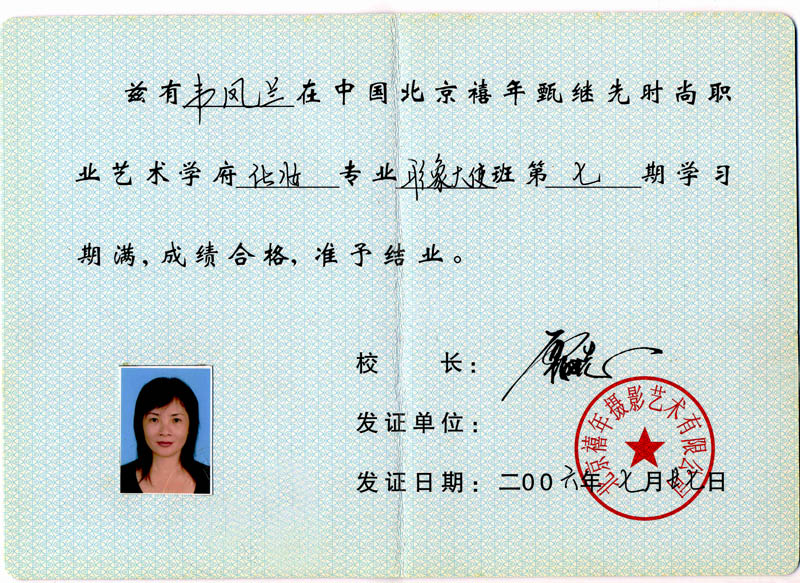 兹有韦凤兰在中国北京禧年甄继先时尚职
业艺术学府化妆专业形象大使班第七期学习
期满,成绩合格,准予结业。
校 长:
发证单位:
北京禧年摄影艺术有限公司
发证日期:二00六年七月 七日